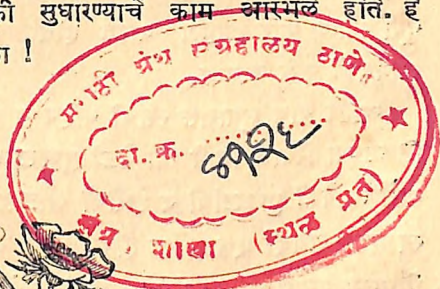 सुधारण्याचे काम आरंभले होते. ह
!
मराठी ग्रंथ संग्रहालय ठाणे.
दा. क्र. ............
४१२६
शाखा (स्थळ प्रत)